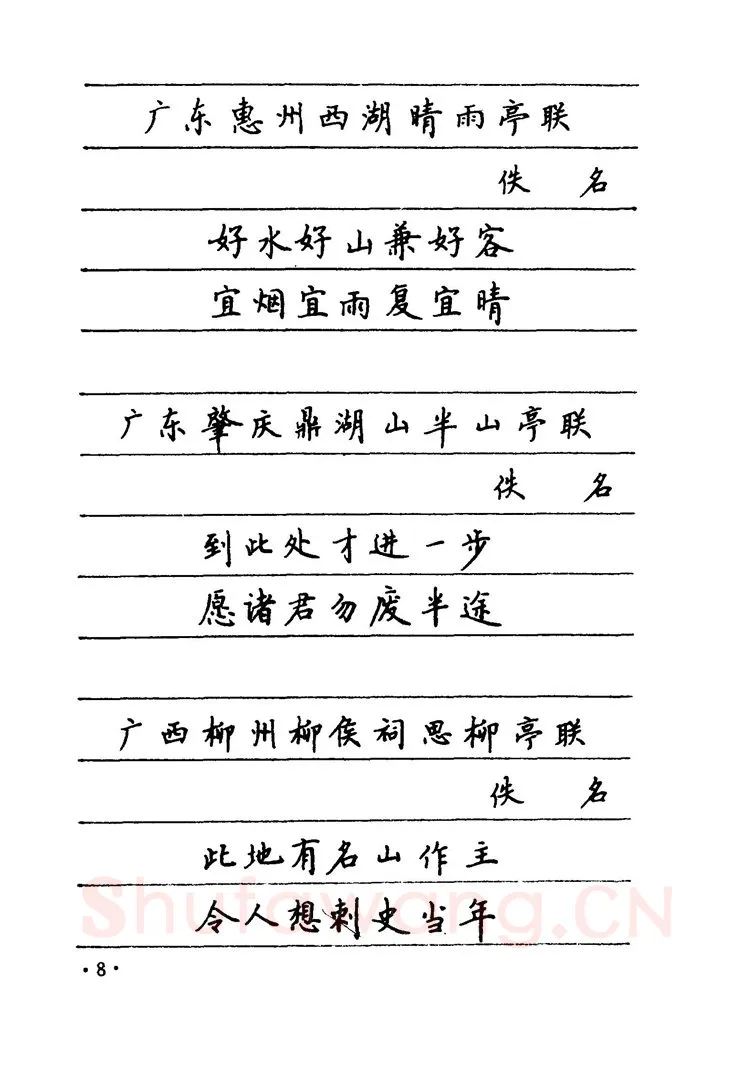 广东惠州西湖晴雨亭联
佚 名
好水好山兼好客
宜烟宜雨复宜晴
广东肇庆鼎湖山半山亭联
佚 名
到此处才进一步
愿诸君勿废半途
广西柳州柳侯祠思柳亭联
佚 名
此地有名山作主
令人想刺史当年
Shufawang.CN
·8·